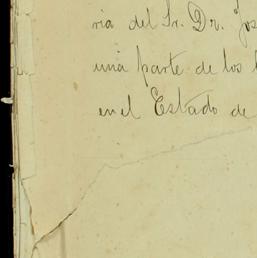 ria del Sr. Dr. Jos
una parte de los l
en el Estado de